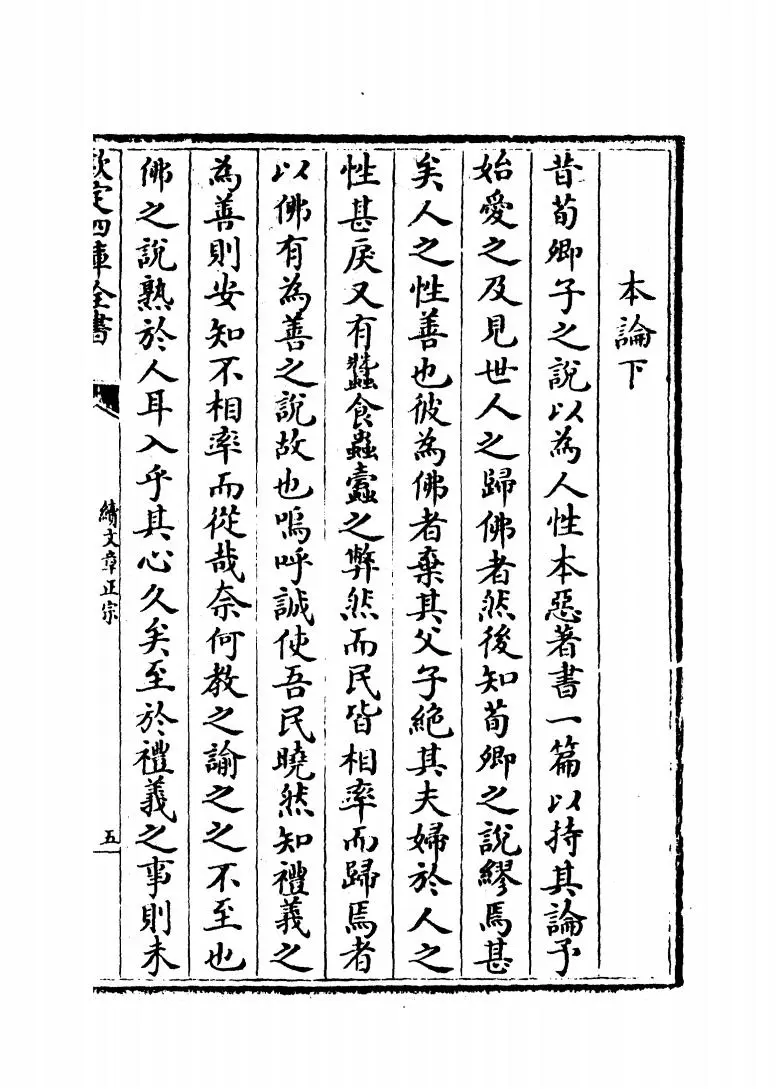 本論下
昔荀卿子之說以為人性本惡著書一篇以持其論予
始愛之及見世人之歸佛者然後知荀卿之說繆焉甚
矣人之性善也彼為佛者棄其父子絶其夫婦於人之
性甚戾又有蠶食蟲蠹之弊然而民皆相率而歸焉者
以佛有為善之說故也嗚呼誠使吾民曉然知禮義之
為善則安知不相率而從哉奈何教之諭之之不至也
佛之說熟於人耳入乎其心久矣至於禮義之事則未
欽定四庫全書
續文章正宗
五